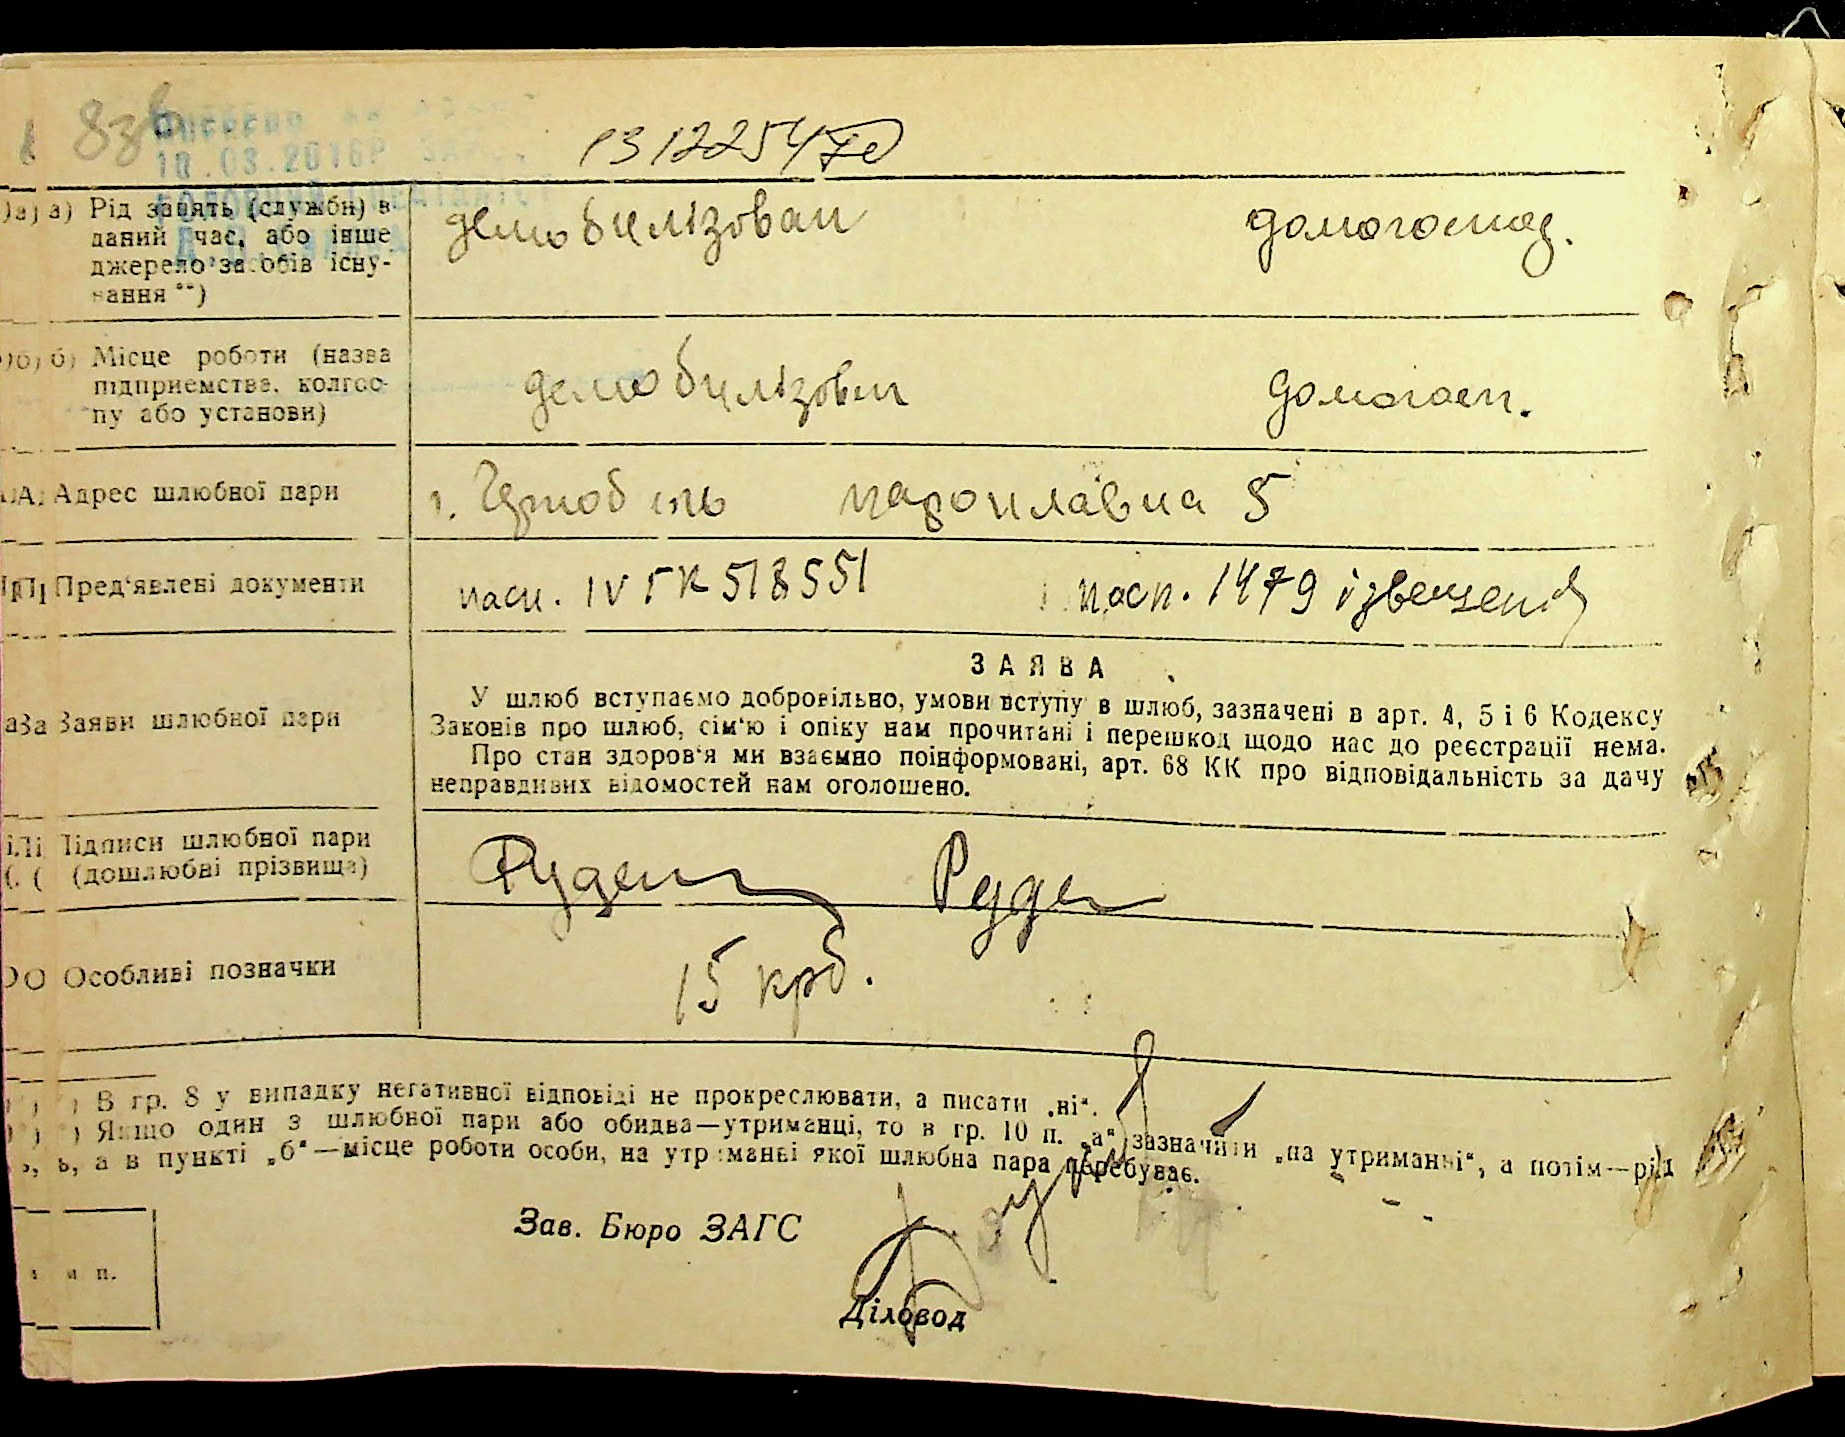 83
10.03.2016р
1312254
а) Рід занять (службн) в
даний час, або інше
джерело засобів існу-
вання **)
демобилізован домогоспод.
б) Місце роботи (назва
підприємства, колгос-
пу або установи)
демобилізован домогосп.
Адрес шлюбної пари
г. Чернобиль пароплавна 5
Пред'явлені документи
пасп. IV ГК 518551 пасп. 1479
ЗАЯВА
Заяви шлюбної пари
У шлюб вступаємо добровільно, умови вступу в шлюб, зазначені в арт. 4, 5 і 6 Кодексу
Законів про шлюб, сім'ю і опіку нам прочитані і перешкод щодо нас до реєстрації нема.
Про стан здоров'я ми взаємно поінформовані, арт. 68 КК про відповідальність за дачу
неправдивих відомостей нам оголошено.
Підписи шлюбної пари
(дошлюбні прізвища)
Руден Руде
Особливі позначки
15 крб.
) В гр. 8 у випадку негативної відповіді не прокреслювати, а писати „ні".
) Якщо один з шлюбної пари або обидва—утриманці, то в гр. 10 п. „а" зазначити „на утриманні", а потім—рід
а в пункті „б"—місце роботи особи, на утриманні якої шлюбна пара перебуває.
Зав. Бюро ЗАГС
п.
Діловод